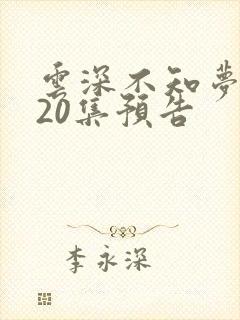 雲深不知夢
20集預告
李永深